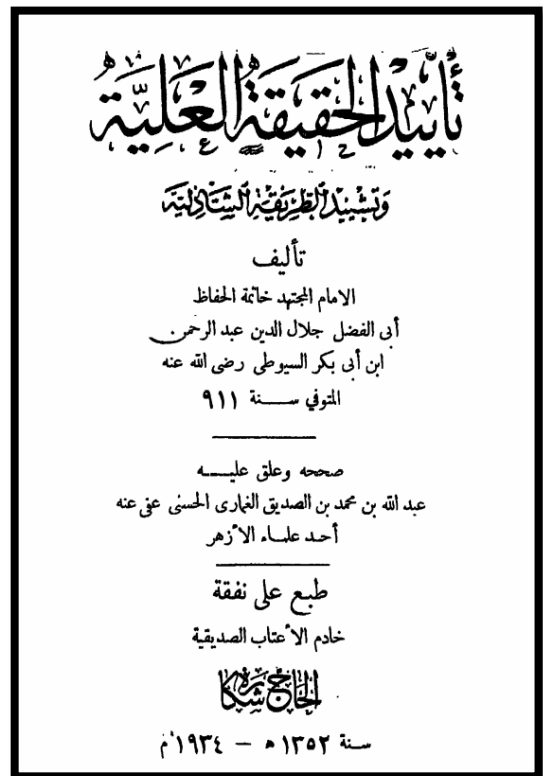 تأييد الحقيقة العلية
وتشييد الطريقة الشاذلية
تأليف
الامام المجتهد خاتمة الحفاظ
أبى الفضل جلال الدين عبد الرحمن
ابن أبى بكر السيوطى رضى الله عنه
المتوفي سنة ٩١١
صححه وعلق عليه
عبد الله بن محمد بن الصديق الغمارى الحسنى عفى عنه
أحد علماء الأزهر
طبع على نفقة
خادم الأعتاب الصديقية
الحاج شكارة
سنة ١٣٥٢ ه – ١٩٣٤ م